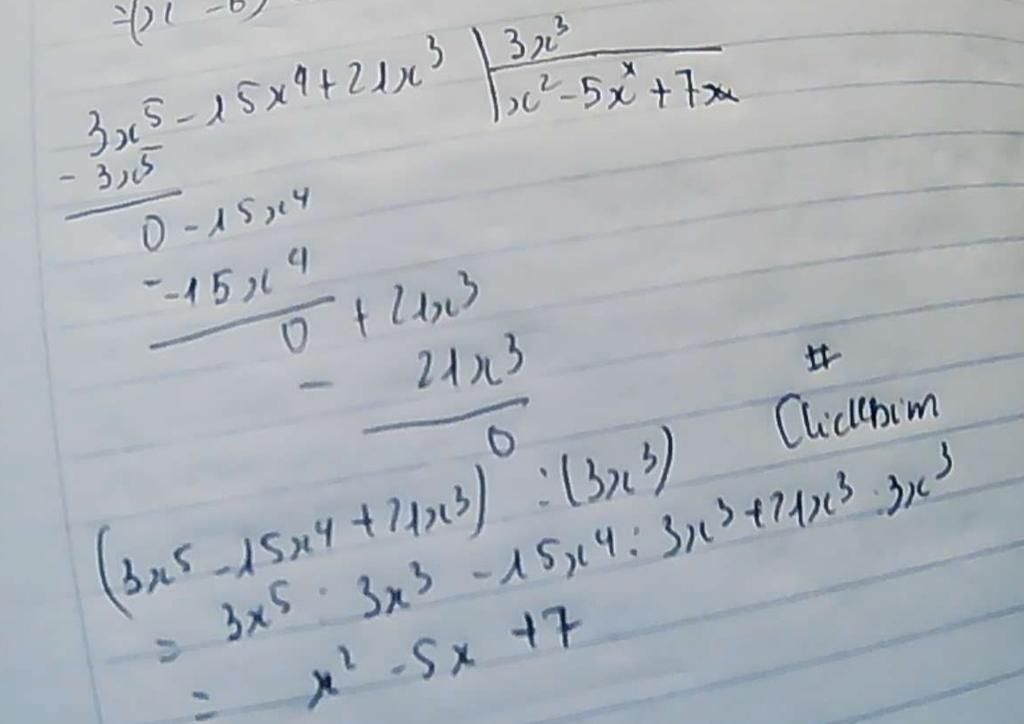 =(x - 6)
3x⁵ - 15x⁴ + 21x³ | 3x³
- 3x⁵ | x² - 5x + 7
0 - 15x⁴
- -15x⁴
0 + 21x³
- 21x³
0
#
(3x⁵ - 15x⁴ + 21x³) : (3x³)
= 3x⁵ : 3x³ - 15x⁴ : 3x³ + 21x³ : 3x³
= x² - 5x + 7